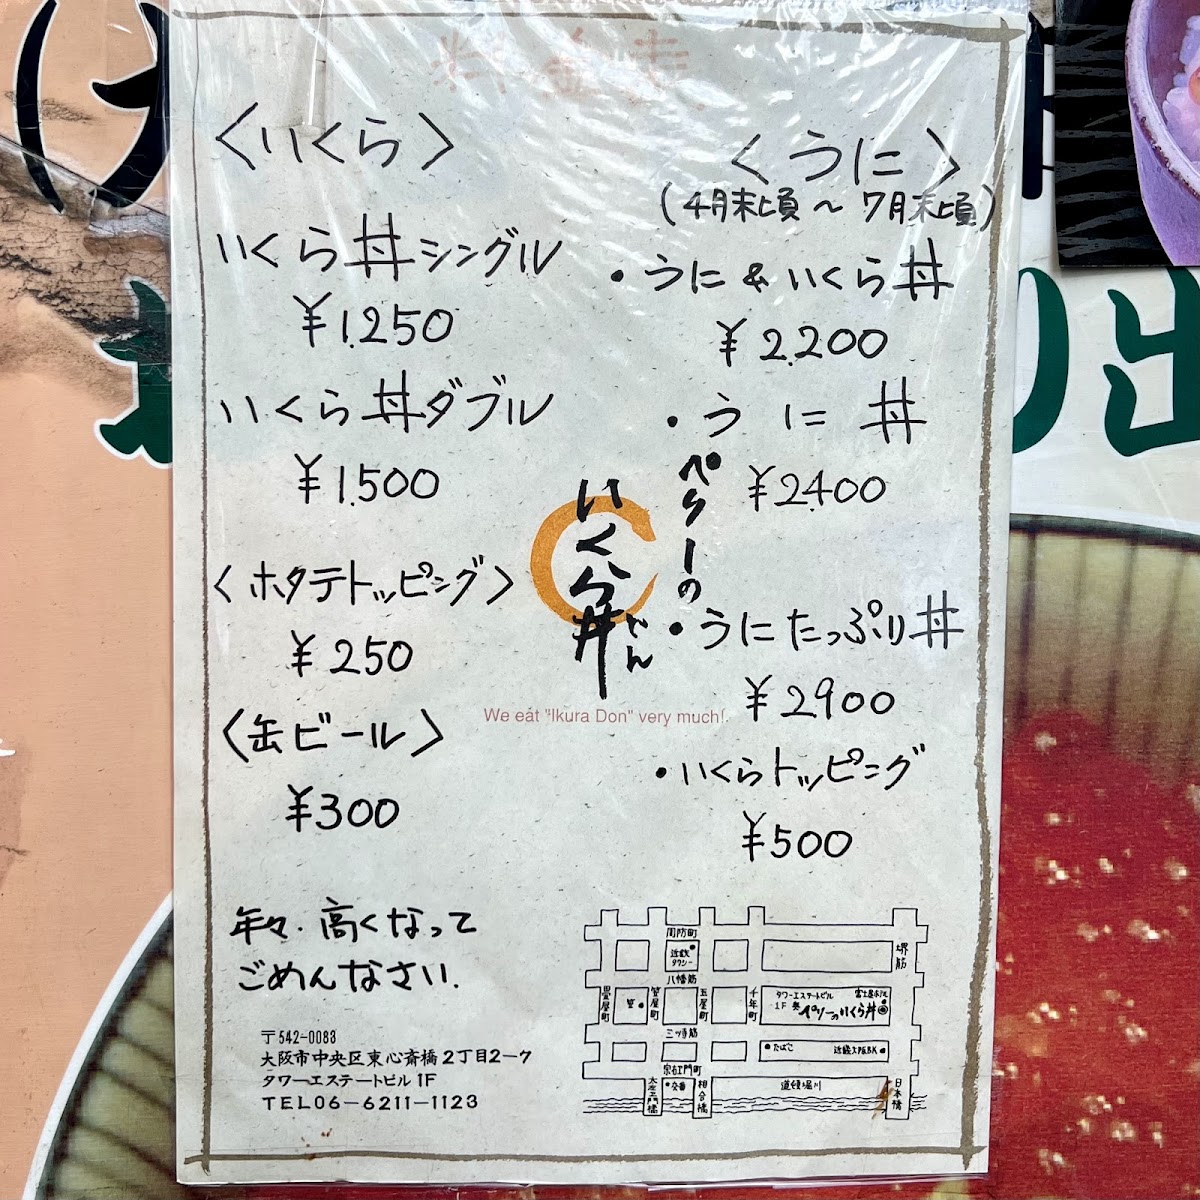 料金表
〈いくら〉
いくら丼シングル
¥1.250
いくら丼ダブル
¥1.500
〈ホタテトッピング〉
¥250
〈缶ビール〉
¥300
〈うに〉
(4月末頃～7月末頃)
・うに&いくら丼
¥2.200
・うに丼
¥2.400
・うにたっぷり丼
¥2900
・いくらトッピング
¥500
ペリーの
いくら丼
どん
We eat "Ikura Don" very much!.
年々.高くなって
ごめんなさい.
〒542-0083
大阪市中央区東心斎橋2丁目2-7
タワーエステートビル1F
TEL06-6211-1123
周防町
近鉄
タクシー
堺筋
八幡筋
畳屋町
笠屋町
玉屋町
千年町
笹
タワーエステートビル
1F奥
ペリーのいくら丼
三ツ寺筋
たばこ
近畿大阪BK
宗右エ門町
太左エ門橋
交番
相合橋
道頓堀川
日本橋